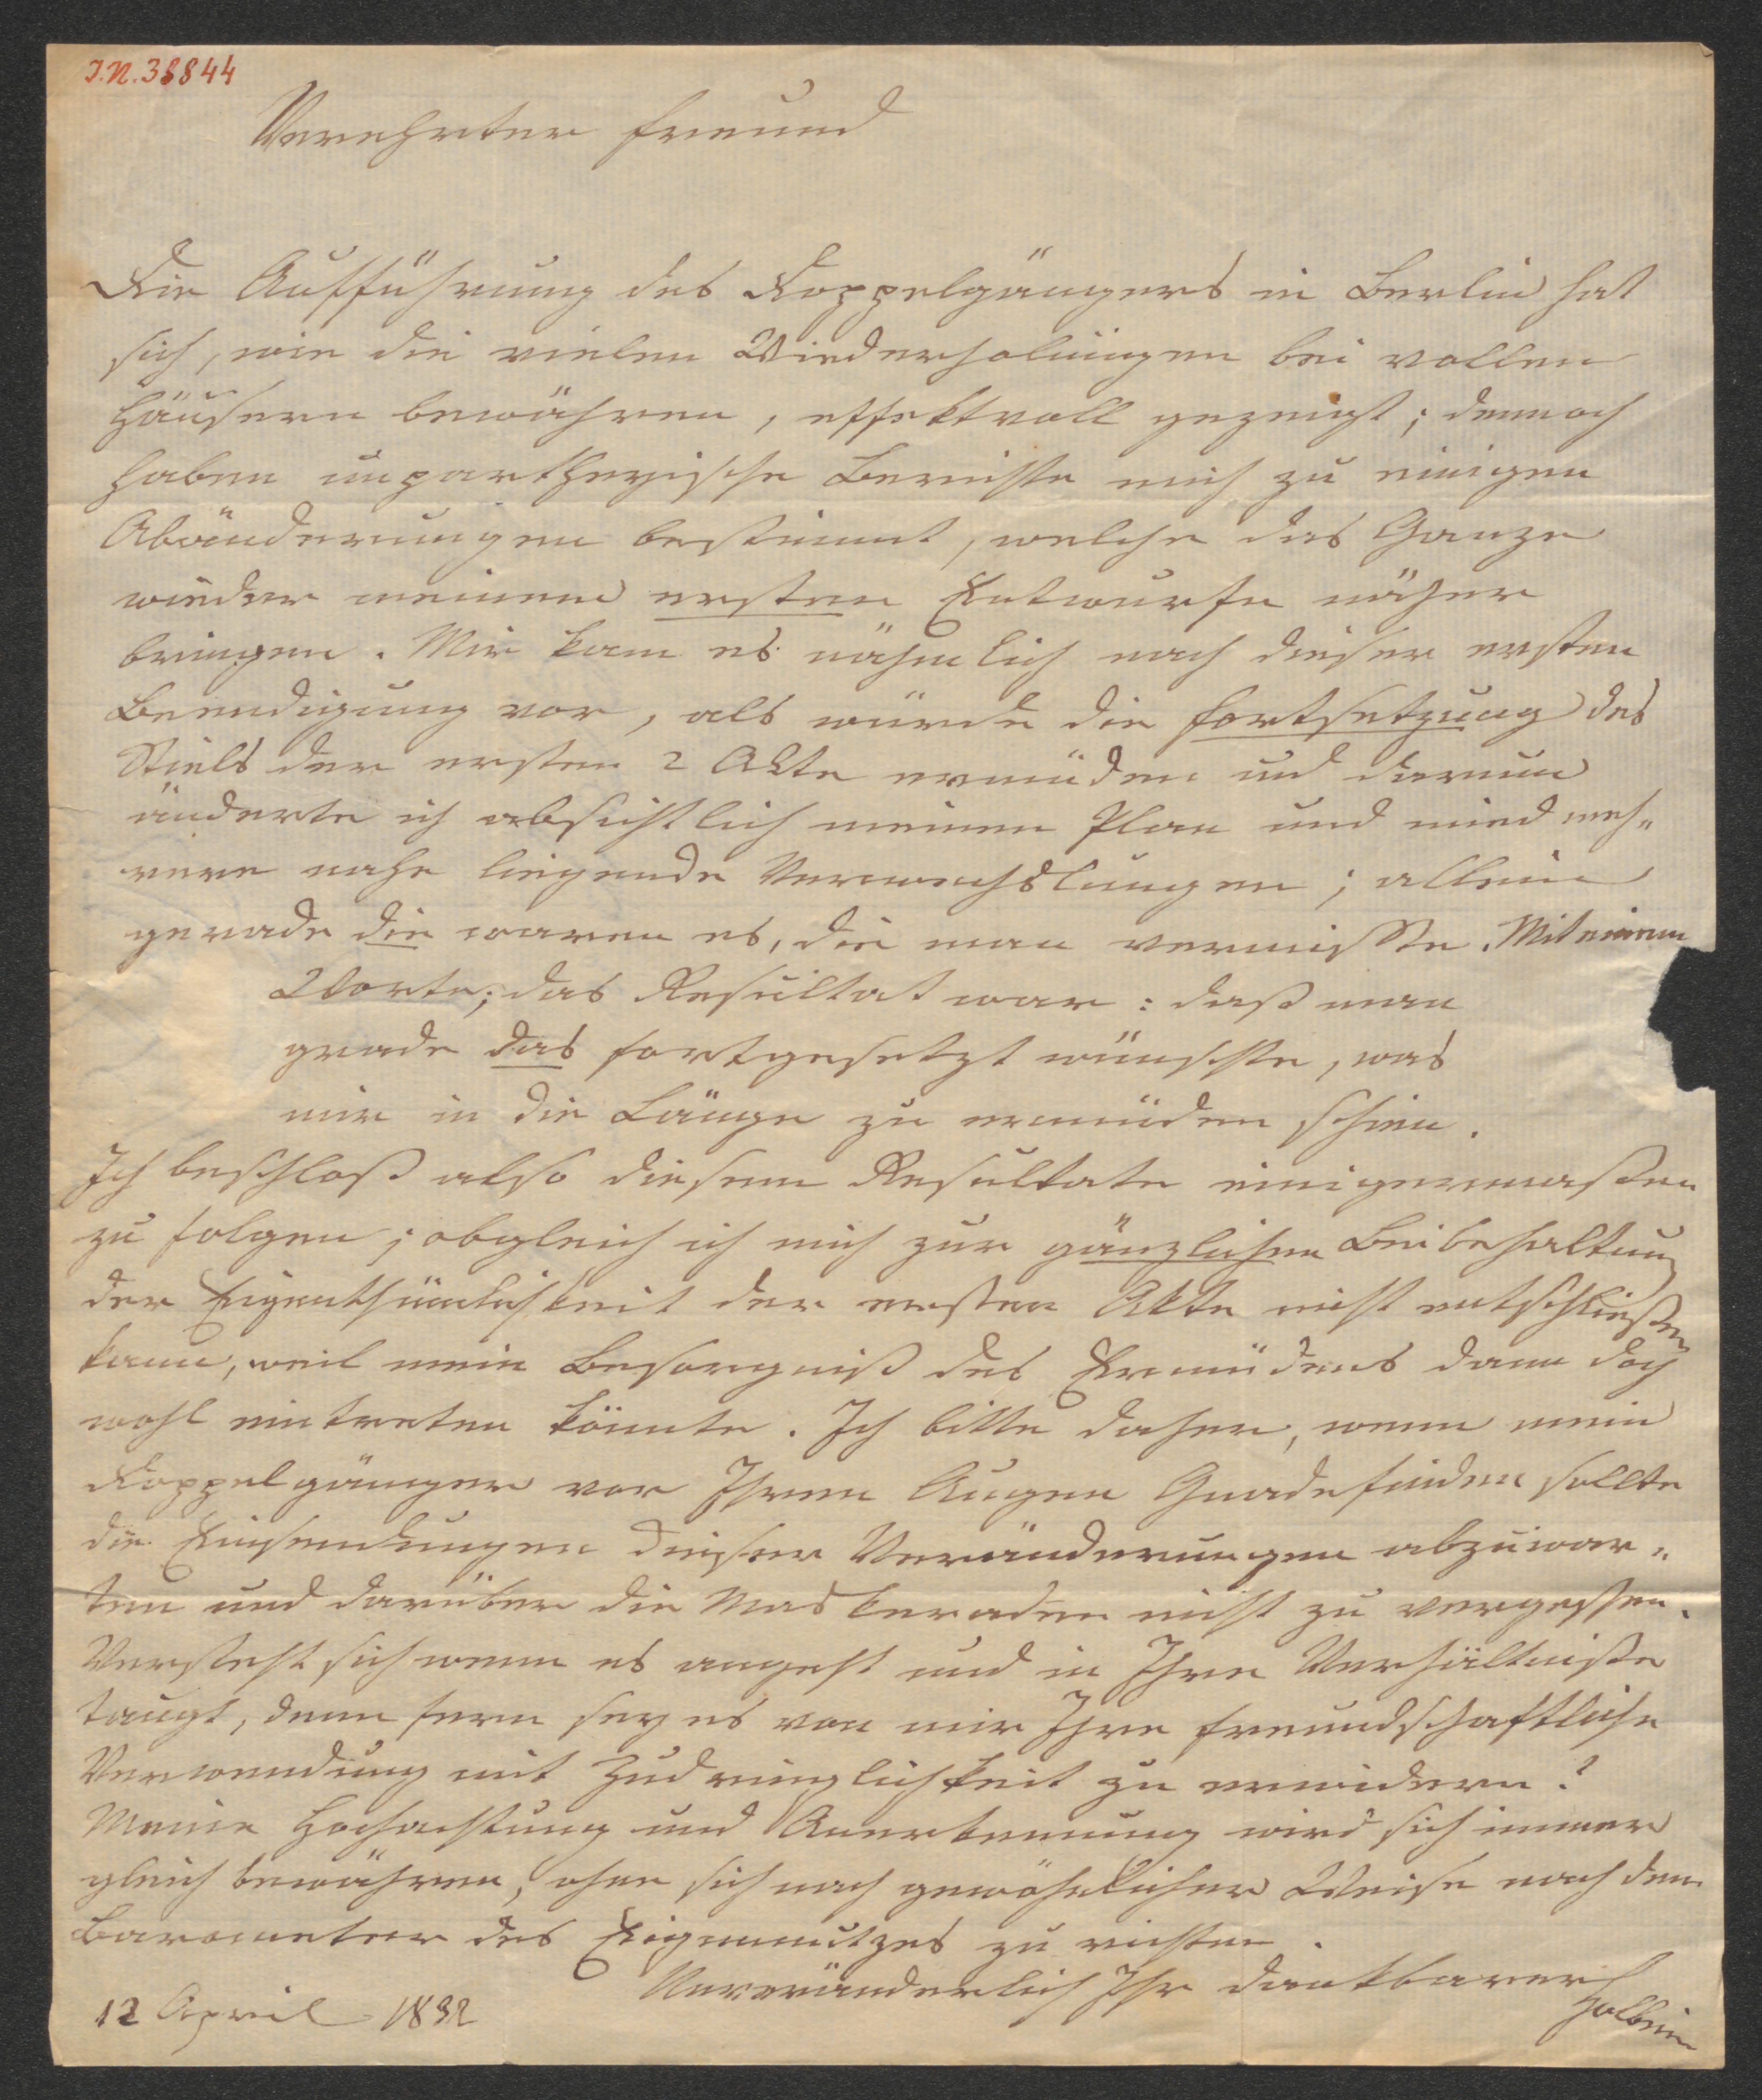 I.N. 38844
Verehrter Freund
Die Aufführung des Doppelgängers in Berlin hat
sich, wie die vielen Wiederholungen bei vollen
Häusern bewähren, effektvoll gezeigt; dennoch
haben unpartheyische Berichte mich zu einigen
Abänderungen bestimmt, welche das Ganze
wieder meinem ersten Entwurfe näher
bringen. Mir kam es nähmlich nach dieser ersten
Beendigung vor, als würde die Fortsetzung des
Stiels der ersten 2 Akte ermüden und darum
änderte ich absichtlich meinen Plan und mied meh„
rere nahe liegende Verwechslungen; allein
gerade die waren es, die man vermißte. Mit einem
Worte; das Resultat war: daß man
grade das fortgesetzt wünschte, was
mir in die Länge zu ermüden schien.
Ich beschloß also diesem Resultate einigermaßen
zu folgen; obgleich ich mich zur gänzlichen Beibehaltung
der Eigenthümlichkeit der ersten Akte nicht entschließen
kann, weil mein Besorgniß des Ermüdens dann doch
wohl eintreten könnte. Ich bitte daher, wenn mein
Doppelgänger vor Ihren Augen Gnade finden sollte
die Einsendungen dieser Veränderungen abzuwar„
ten und darüber die Maskeraden nicht zu vergessen.
Versteht sich wenn es angeht und in Ihre Verhältniße
taugt, denn fern sey es von mir Ihre freundschaftliche
Verwendung mit Zudringlichkeit zu erwidern!
Meine Hochachtung und Anerkennung wird sich immer
gleich bewähren, ohne sich nach gewöhnlicher Weise nach dem
Barometer des Eigennutzes zu richten.
Unveränderlich Ihr dankbarer
Holbein
12 April 1832